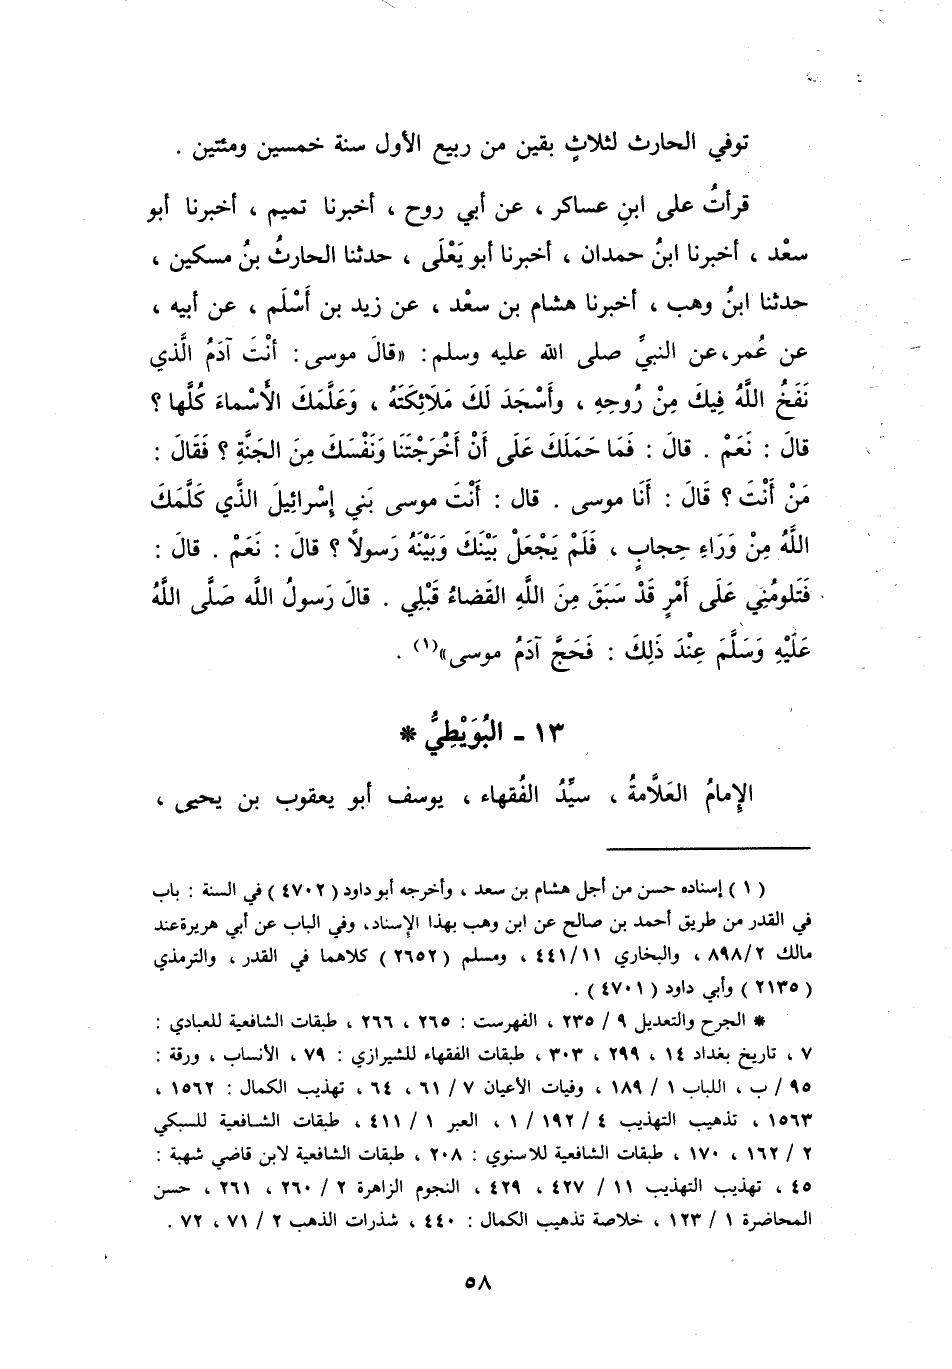 توفي الحارث لثلاثٍ بقين من ربيع الأول سنة خمسين ومئتين .
قرأتُ على ابنِ عساكر ، عن أبي روح ، أخبرنا تميم ، أخبرنا أبو
سعْد ، أخبرنا ابنُ حمدان ، أخبرنا أبو يَعْلَى ، حدثنا الحارثُ بنُ مسكين ،
حدثنا ابنُ وهب ، أخبرنا هشام بن سعْد ، عن زيد بن أَسْلَم ، عن أبيه ،
عن عُمر، عن النبيِّ صلى الله عليه وسلم: «قالَ موسى: أنْتَ آدَمُ الَّذي
نَفَخُ اللَّهُ فِيكَ مِنْ رُوحِهِ ، وأَسْجَدَ لَكَ مَلَائِكَتَهُ ، وَعَلَّمَكَ الأَسْماءَ كُلَّها ؟
قالَ : نَعَمْ . قالَ : فَمَا حَمَلَكَ عَلَى أَنْ أَخْرَجْتَنَا وَنَفْسَكَ مِنَ الجَنَّةِ ؟ فَقَالَ :
مَنْ أَنْتَ ؟ قَالَ : أَنَا موسى . قال : أَنْتَ موسى بَني إِسْرائِيلَ الذَّي كَلَّمَكَ
اللَّهُ مِنْ وَرَاءِ حِجابٍ ، فَلَمْ يَجْعَلْ بَيْنَكَ وَبَيْنَهُ رَسولاً ؟ قالَ : نَعَمْ . قالَ :
فَتَلومُنِي عَلَى أَمْرٍ قَدْ سَبَقَ مِنَ اللَّهِ القَضاءُ قَبْلِي . قالَ رَسولُ الله صَلَّى اللَّهُ
عَلَيْهِ وَسَلَّمَ عِنْدَ ذَلِكَ : فَحَجَّ آدَمُ موسى»(١) .
١٣ - البُوَيْطِيُّ *
الإِمامُ العَلَّامةُ ، سيِّدُ الفُقهاء ، يوسف أبو يعقوب بن يحيى ،
( ١ ) إسناده حسن من أجل هشام بن سعد ، وأخرجه أبو داود ( ٤٧٠٢ ) في السنة : باب
في القدر من طريق أحمد بن صالح عن ابن وهب بهذا الإسناد، وفي الباب عن أبي هريرة عند
مالك ٨٩٨/٢ ، والبخاري ٤٤١/١١ ، ومسلم ( ٢٦٥٢ ) كلاهما في القدر ، والترمذي
( ٢١٣٥ ) وأبي داود ( ٤٧٠١ ) .
* الجرح والتعديل ٩ / ٢٣٥ ، الفهرست : ٢٦٥ ، ٢٦٦ ، طبقات الشافعية للعبادي :
٧ ، تاريخ بغداد ١٤ ، ٢٩٩ ، ٣٠٣ ، طبقات الفقهاء للشيرازي : ٧٩ ، الأنساب ، ورقة :
٩٥ / ب ، اللباب ١ / ١٨٩ ، وفيات الأعيان ٧ / ٦١ ، ٦٤ ، تهذيب الكمال : ١٥٦٢ ،
١٥٦٣ ، تذهيب التهذيب ٤ / ١٩٢ / ١ ، العبر ١ / ٤١١ ، طبقات الشافعية للسبكي
٢ / ١٦٢ ، ١٧٠ ، طبقات الشافعية للاسنوي : ٢٠٨ ، طبقات الشافعية لابن قاضي شهبة :
٤٥ ، تهذيب التهذيب ١١ / ٤٢٧ ، ٤٢٩ ، النجوم الزاهرة ٢ / ٢٦٠ ، ٢٦١ ، حسن
المحاضرة ١ / ١٢٣ ، خلاصة تذهيب الكمال : ٤٤٠ ، شذرات الذهب ٢ / ٧١ ، ٧٢ .
٥٨